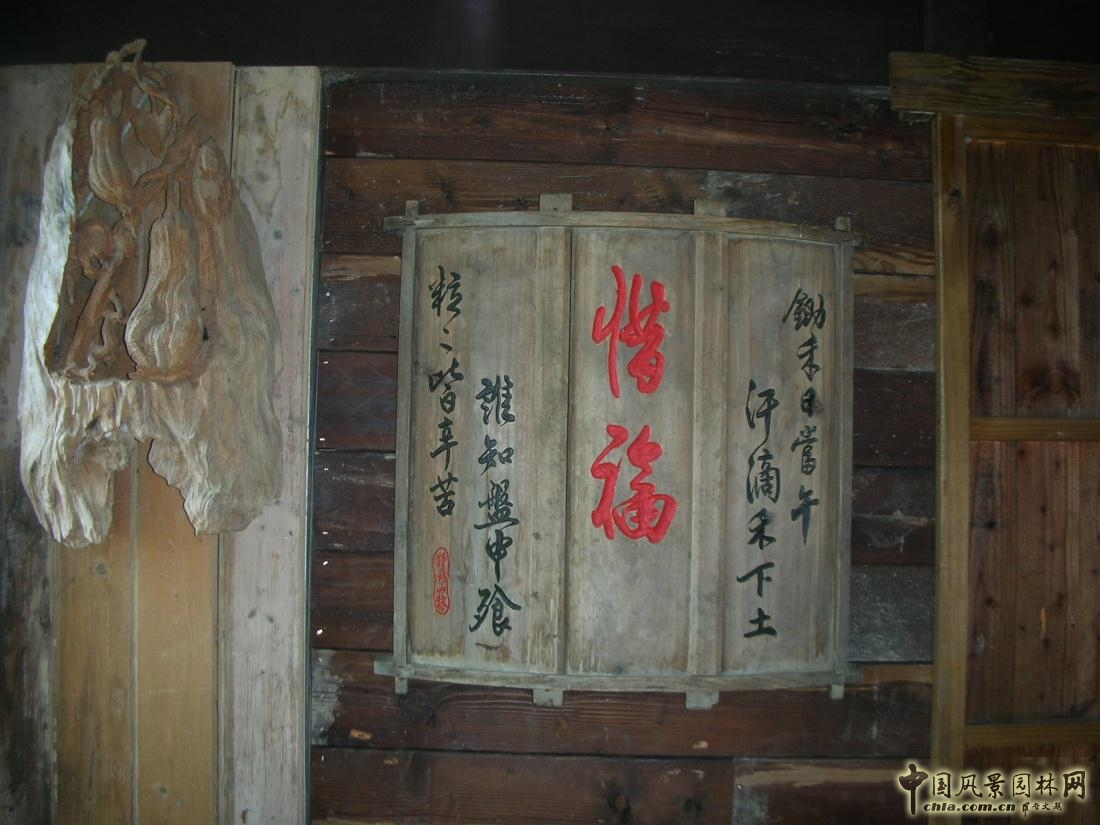 鋤禾日當午
汗滴禾下土
惜福
誰知盤中飱
粒〻皆辛苦
中国风景园林网
chla.com.cn